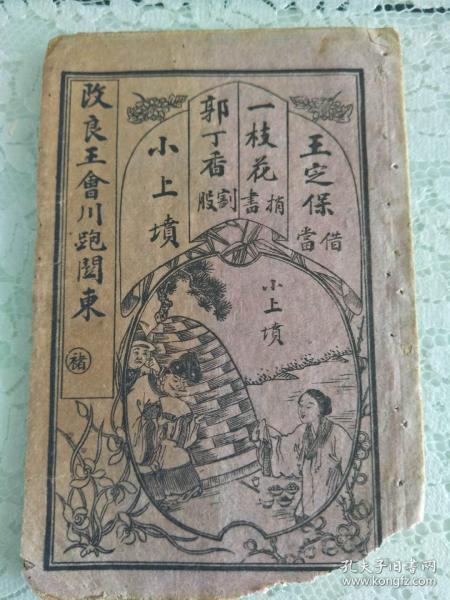 王定保
借當
一枝花
捎書
郭丁香
割股
小上墳
改良王會川跑關東
褚
小上墳
孔夫子旧书网
www.kongfz.com